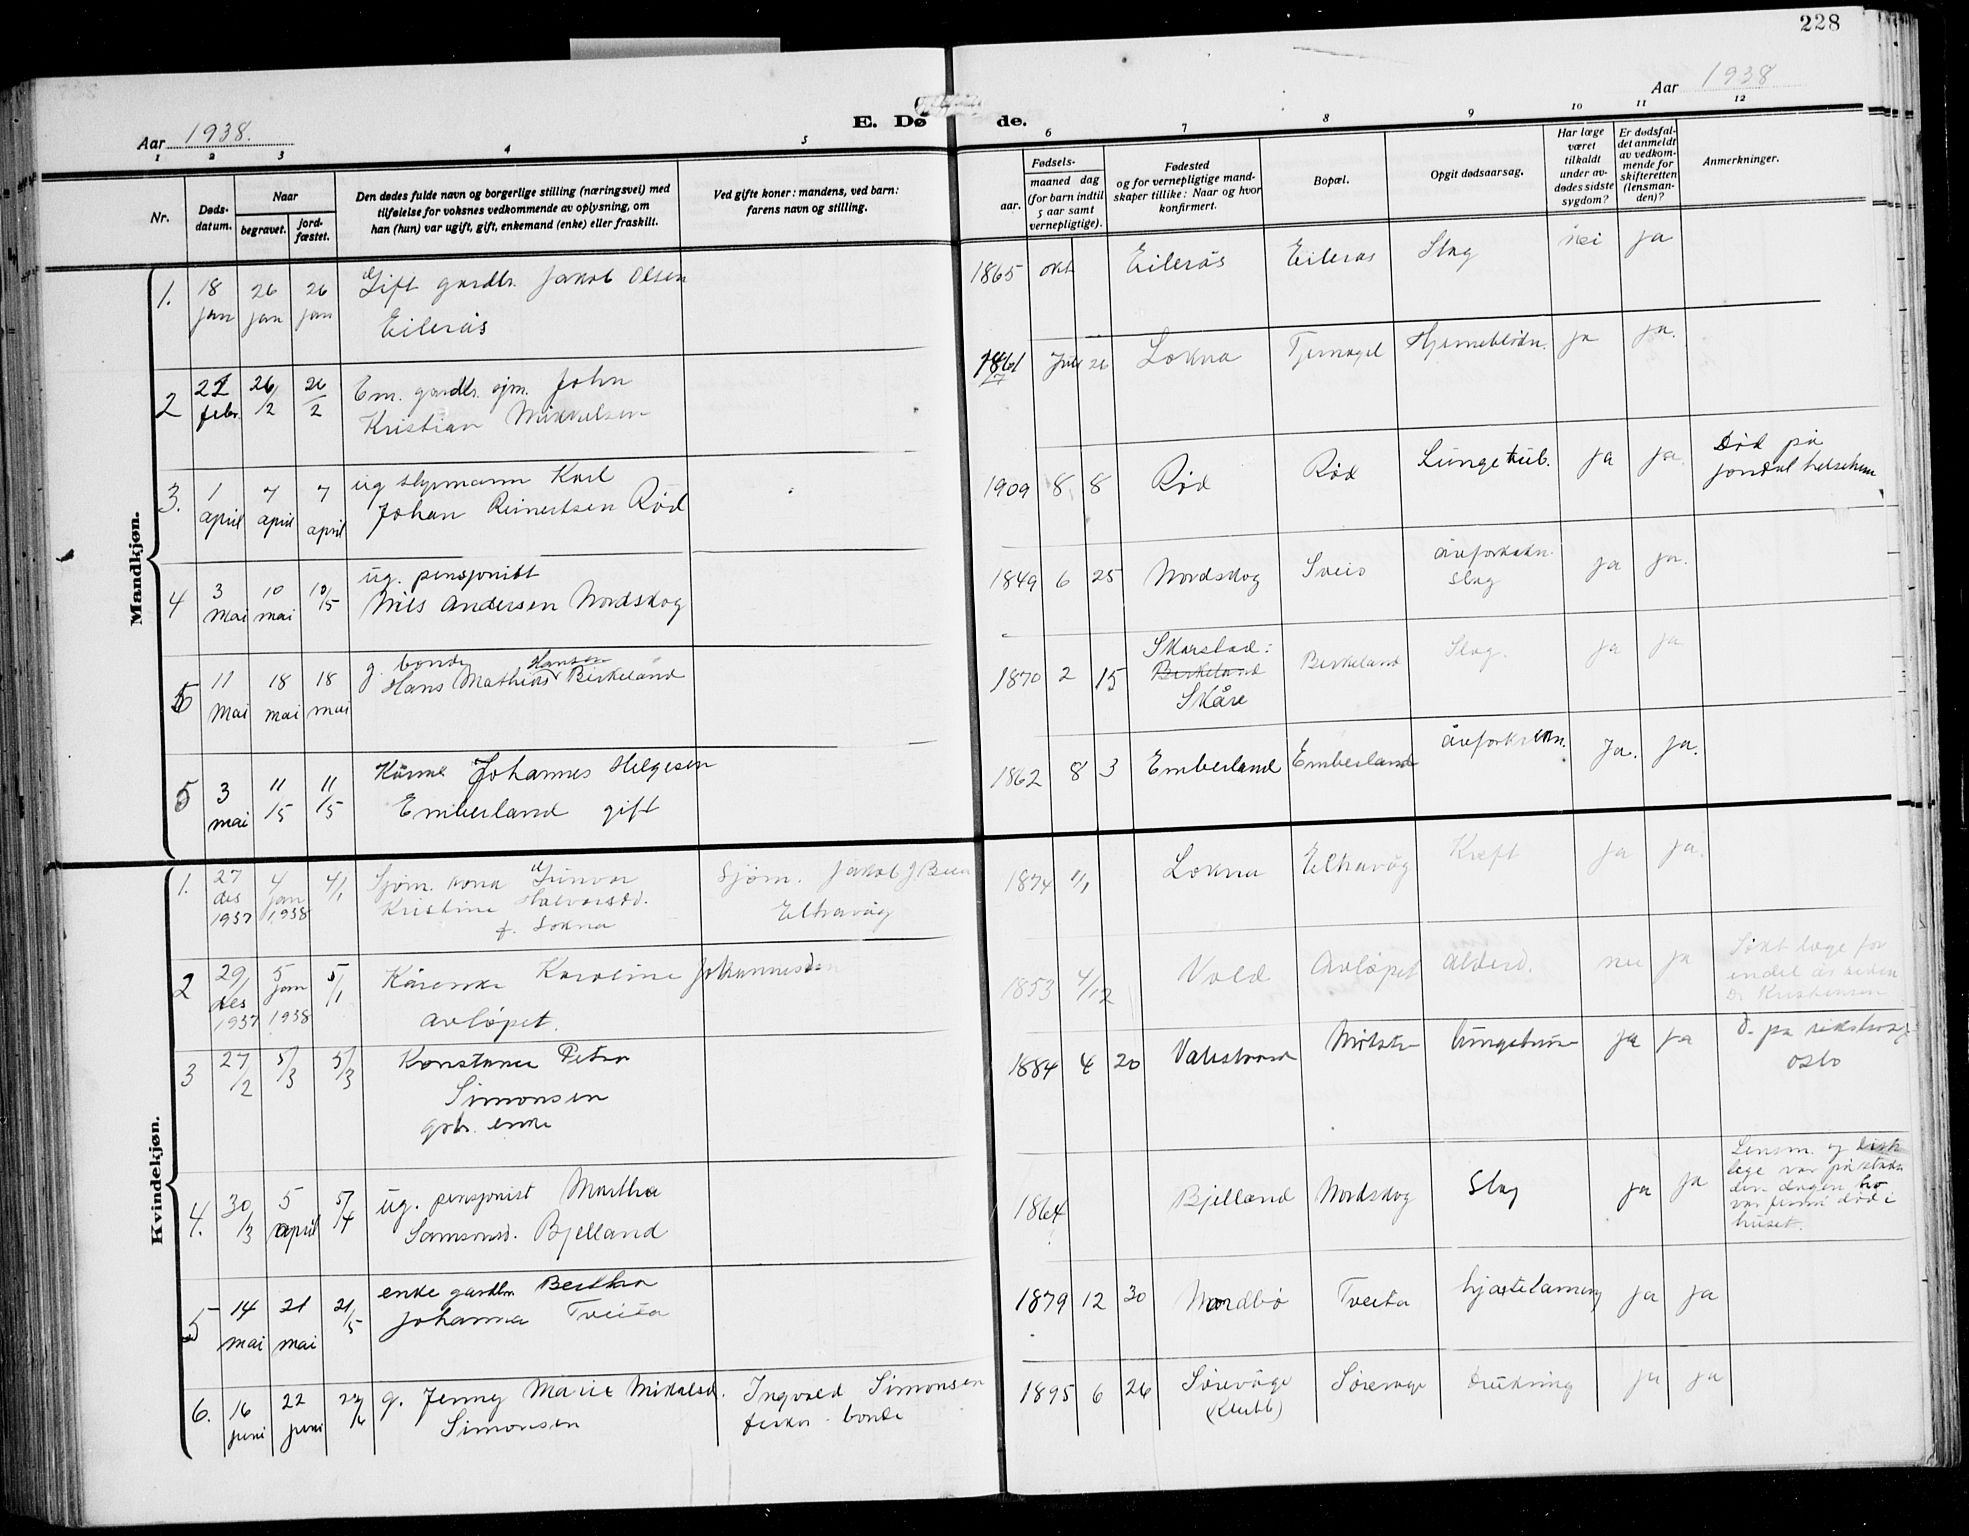 228
Aar 1938.
E. Døde.
Aar 1938
1 2 3 4 5 6 7 8 9 10 11 12
Nr.
Døds-datum.
Naar
begravet.
jord-fæstet.
Den dødes fulde navn og borgerlige stilling (næringsvei) med
tilføielse for voksnes vedkommende av oplysning, om
han (hun) var ugift, gift, enkemand (enke) eller fraskilt.
Ved gifte koner: mandens, ved barn:
farens navn og stilling.
Fødsels-
aar.
maaned dag
(for barn indtil
5 aar samt
vernepligtige).
Fødested
og for vernepligtige mand-
skaper tillike: Naar og hvor
konfirmert.
Bopæl.
Opgit dødsaarsag.
Har læge
været
tilkaldt
under av-
dødes sidste
sygdom?
Er dødsfal-
det anmeldt
av vedkom-
mende for
skifteretten
(lensman-
den)?
Anmerkninger.
Mandkjøn.
1. 18 jan 26 jan 26 jan Gift gardbr. Jakob Olsen
Eilerås
1865 okt Eilerås Eilerås Slag nei ja
2 21 febr. 26/2 26/2 Em. gardbr. sjm. John
Kristian Mikkelsen
1861 Juli 26 Lokna Tjernagel Hjerneblødn. ja ja.
3. 1 april 7 april 7 april ug styrmann Karl
Johan Reinertsen Rød
1909 8 8 Rød Rød Lungetub. ja ja. Død på
Jondal helseheim
4 3 Mai 10 mai 10/5 ug. pensjonist
Nils Andersen Nordskog
1849 6 25 Nordskog Sveio åreforkalkn.
slag ja ja.
5 11 Mai 18 mai 18 mai g. bonde
Hans Mathias Hansen Birkeland
1870 2 15 Skarstad:
Birkeland
Skåre Birkeland Slag. ja ja
5 3 mai 11/5 11/5 Kårm. Johannes Helgesen
Emberland gift
1862 8 3 Emberland Emberland åreforkalkn. Ja. ja.
Kvindekjøn.
1. 27 des 1937 4 Jan 1938 4/1 Sjøm. kona Gunvor
Kristine Halvorsd.
f. Lokna
Sjøm. Jakob J
Eltravåg
1874 1/1 Lokna Eltravåg Kreft ja ja.
2 29/ des 1937 5 jan 1938 5/1 Kårenke Karoline Johannesdtr
Avløpet.
1853 4/12 Vold Avløpet Alderd. nei ja Søkt læge for
endel år siden
Dr. Kristensen
3 27/2 5/3 5/3 Konstance Petra
Simonsen
gbr. enke
1884 4 20 Valestrand ja ja d. på rikshosp
Oslo
4. 30/3 5 april 5/4 ug. pensjonist Martha
Samsonsd. Bjelland
1864 Bjelland Nordskog Slag ja ja Lensm. og
lege var på staden
den dagen ho
var funni død i
huset.
5 14 mai 21 mai 21/5 enke gardbr. Bertha
Johanna Tveita
1879 12 30 Nordbø Tveita hjartelamning ja ja
6. 16 juni 22 juni 22/6 g. Jenny Marie Mikalsd.
Simonsen
Ingvald Simonsen
fisker-bonde
1895 6 26 Sørevåge
(Klubb) Sørevåge drukning ja ja